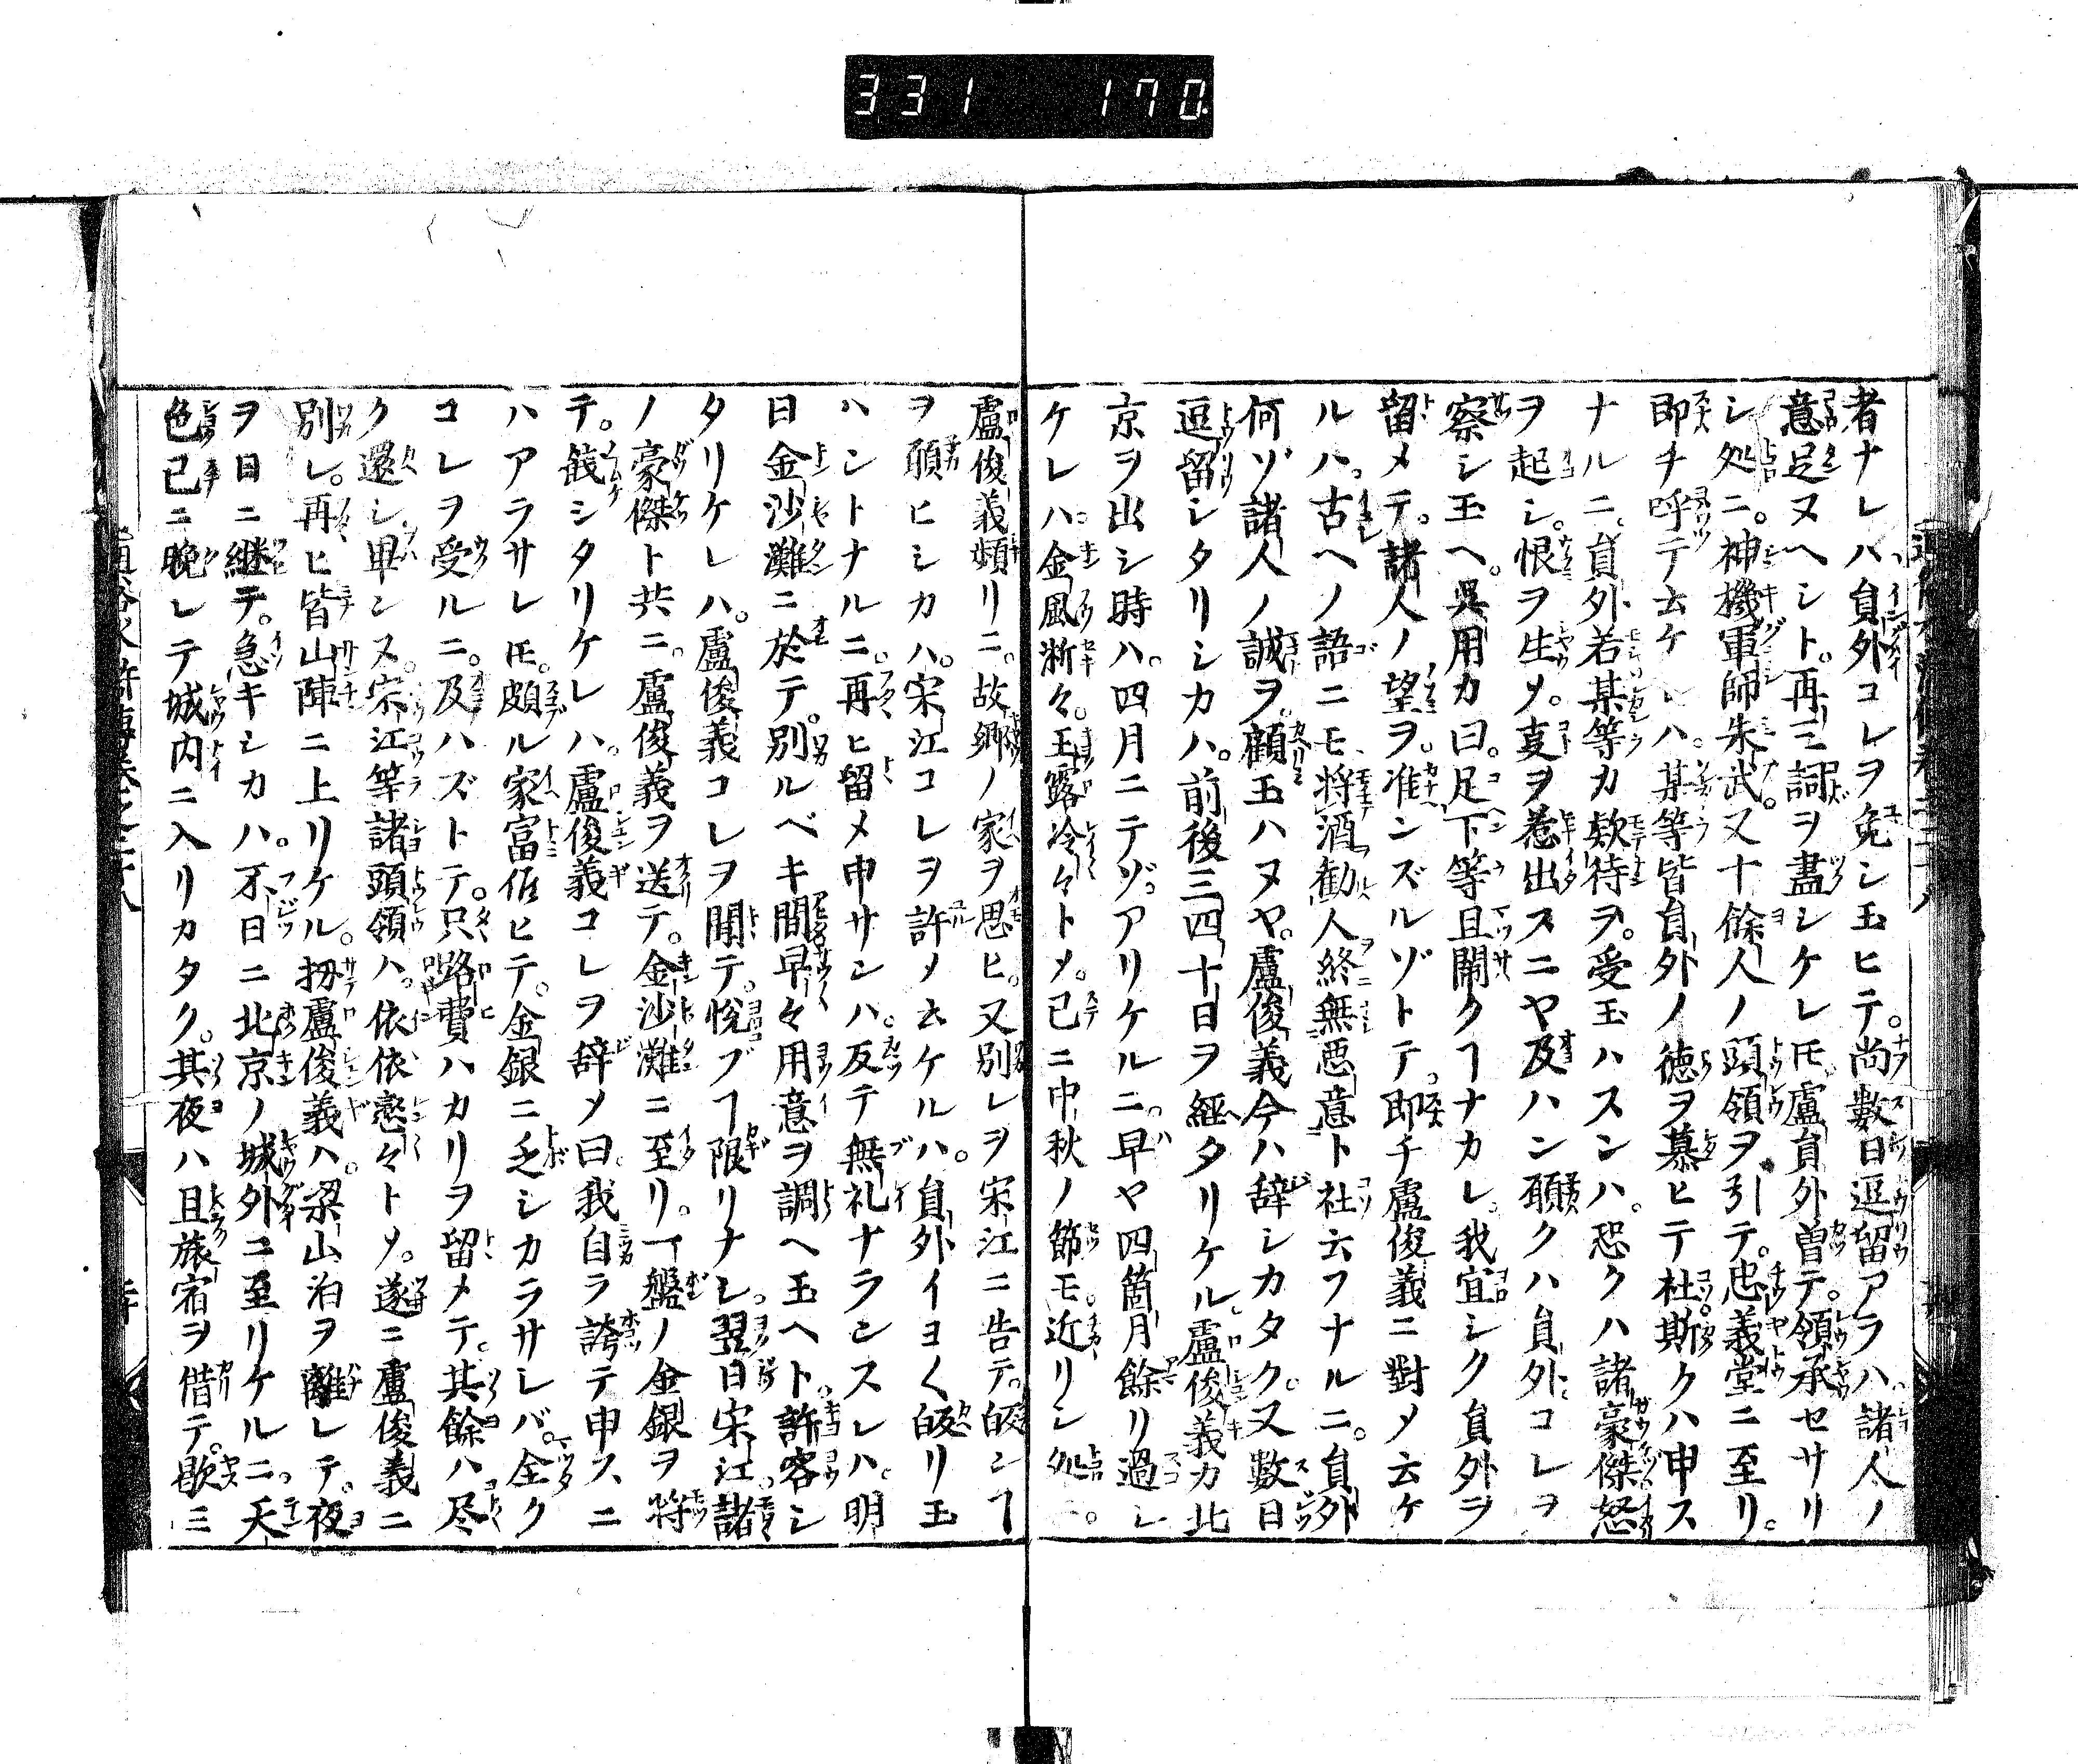 331 170
者ナレハ員外コレヲ免シ玉ヒテ。尚数日逗留アラハ諸人ノ
意足ヌヘシト。再三詞ヲ盡シケレ𪜈盧員外曽テ。領承セサリ
シ処ニ。神機軍師朱武。又十餘人ノ頭領ヲ引テ。忠義堂ニ至リ。
即チ呼テ云ケレハ。某等皆員外ノ徳ヲ慕ヒテ社斯クハ申ス
ナルニ。員外若某等カ欵待ヲ。受玉ハスンハ。恐クハ諸豪傑怒
ヲ起シ。恨ヲ生メ。㕝ヲ惹出スニヤ及ハン願クハ員外コレヲ
察シ玉ヘ。呉用カ曰。足下等且閙クヿナカレ。我宜シク員外ヲ
留メテ。諸人ノ望ヲ。准ンズルゾトテ。即チ盧俊義ニ對メ云ケ
ルハ。古ヘノ語ニモ、将酒勧人終無悪意ト社云フナルニ。員外
何ゾ諸人ノ誠ヲ。顧玉ハヌヤ。盧俊義今ハ辞シカタク。又數日
逗留シタリシカハ。前後三四十日ヲ経タリケル。盧俊義カ北
京ヲ出シ時ハ。四月ニテゾ。アリケルニ。早ヤ四箇月餘リ過シ
ケレハ。金風淅々。玉露冷々トメ。已ニ中秋ノ節モ。近リシ処ニ。
盧俊義頻リニ。故郷ノ家ヲ思ヒ。又別レヲ宋江ニ告テ。皈ンヿ
ヲ願ヒシカハ。宋江コレヲ許メ云ケルハ。員外イヨ〱皈リ玉
ハントナルニ。再ヒ留メ申サンハ。反テ無礼ナランスレハ。明
日金沙灘ニ於テ。別ルベキ間早々用意ヲ調ヘ玉ヘト。許容シ
タリケレハ。盧俊義コレヲ聞テ。悦ブヿ限リナシ。翌日宋江。諸
ノ豪傑ト共ニ。盧俊義ヲ送テ。金沙灘ニ至リ。一盤ノ金銀ヲ将
テ。餞シタリケレハ。盧俊義コレヲ辞メ曰。我自ラ誇テ申スニ
ハアラサレ𪜈。頗ル家富候ヒテ。金銀ニ乏シカラサレバ。全ク
コレヲ受ルニ。及ハズトテ。只路費ハカリヲ留メテ。其餘ハ尽
ク還シ畢ンヌ。宋江等諸頭領ハ。依依戀々トメ。遂ニ盧俊義ニ
別レ。再ヒ皆山陣ニ上リケル。扨盧俊義ハ。梁山泊ヲ離レテ。夜
ヲ日ニ継テ。急キシカハ。不日ニ北京ノ城外ニ至リケルニ。天
色已ニ晩レテ城内ニ入リカタク。其夜ハ且旅宿ヲ借テ。歇ミ